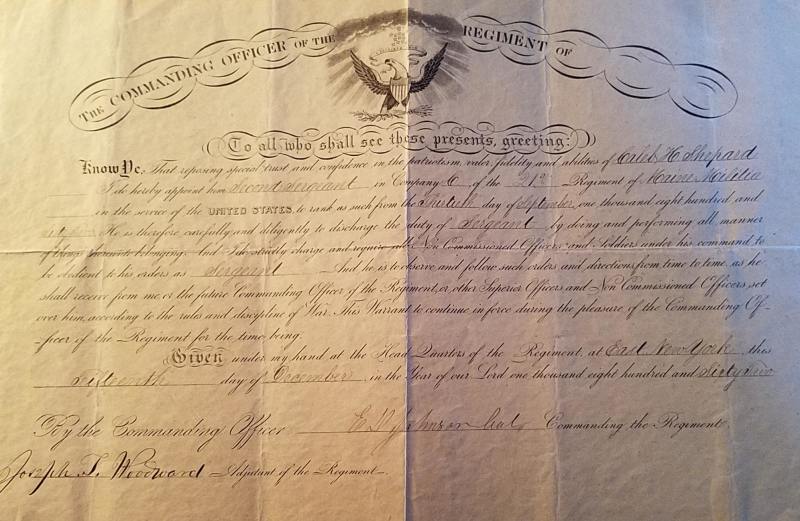 THE COMMANDING OFFICER OF THE REGIMENT OF
To all who shall see these presents, greeting:
Know Ye, That reposing special trust and confidence in the patriotism, valor, fidelity and abilities of Caleb H. Shepard
I do hereby appoint him Second Sergeant in Company C of the 21st Regiment of Maine Militia
in the service of the UNITED STATES, to rank as such from the day of September one thousand eight hundred and
He is therefore carefully and diligently to discharge the duty of Sergeant by doing and performing all manner
of things thereunto belonging. And I do strictly charge and require all Non Commissioned Officers and Soldiers under his command to
be obedient to his orders as Sergeant And he is to observe and follow such orders and directions from time to time, as he
shall receive from me, or the future Commanding Officer of the Regiment, or other Superior Officers and Non Commissioned Officers set
over him, according to the rules and discipline of War. This Warrant to continue in force during the pleasure of the Commanding Of-
-ficer of the Regiment for the time being.
Given under my hand at the Head Quarters of the Regiment, at East New York this
Fifteenth day of December in the Year of our Lord one thousand eight hundred and Sixty Two
By the Commanding Officer E D Johnson Commanding the Regiment.
Joseph T. Woodward Adjutant of the Regiment.